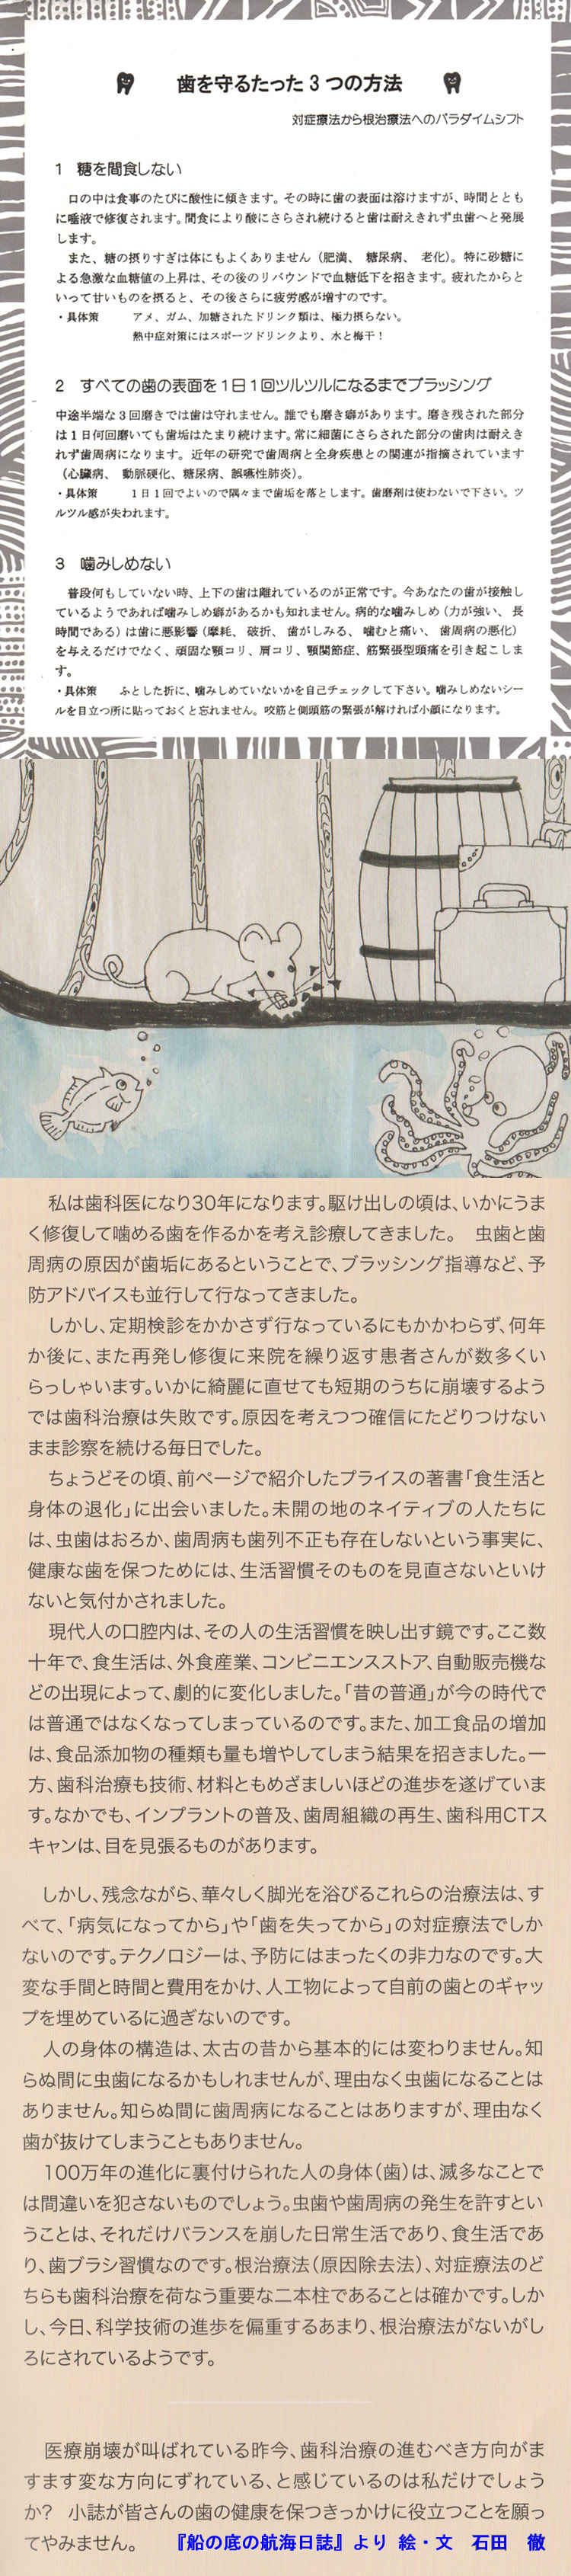 歯を守るたった3つの方法
対症療法から根治療法へのパラダイムシフト
1 糖を間食しない
口の中は食事のたびに酸性に傾きます。その時に歯の表面は溶けますが、時間ととも
に唾液で修復されます。間食により酸にさらされ続けると歯は耐えきれず虫歯へと発展
します。
また、糖の摂りすぎは体にもよくありません（肥満、 糖尿病、 老化）。特に砂糖に
よる急激な血糖値の上昇は、その後のリバウンドで血糖低下を招きます。疲れたからと
いって甘いものを摂ると、その後さらに疲労感が増すのです。
・具体策 アメ、ガム、加糖されたドリンク類は、極力摂らない。
熱中症対策にはスポーツドリンクより、水と梅干！
2 すべての歯の表面を1日1回ツルツルになるまでブラッシング
中途半端な3回磨きでは歯は守れません。誰でも磨き癖があります。磨き残された部分
は1日何回磨いても歯垢はたまり続けます。常に細菌にさらされた部分の歯肉は耐えき
れず歯周病になります。 近年の研究で歯周病と全身疾患との関連が指摘されています
（心臓病、 動脈硬化、糖尿病、誤嚥性肺炎）。
・具体策 1日1回でよいので隅々まで歯垢を落とします。歯磨剤は使わないで下さい。ツ
ルツル感が失われます。
3 噛みしめない
普段何もしていない時、上下の歯は離れているのが正常です。今あなたの歯が接触し
ているようであれば噛みしめ癖があるかも知れません。病的な噛みしめ（力が強い、 長
時間である）は歯に悪影響（摩耗、 破折、 歯がしみる、 噛むと痛い、 歯周病の悪化）
を与えるだけでなく、頑固な顎コリ、肩コリ、顎関節症、筋緊張型頭痛を引き起こしま
す。
・具体策 ふとした折に、噛みしめていないかを自己チェックして下さい。噛みしめないシー
ルを目立つ所に貼っておくと忘れません。咬筋と側頭筋の緊張が解ければ小顔になります。
私は歯科医になり30年になります。駆け出しの頃は、いかにうま
く修復して噛める歯を作るかを考え診療してきました。 虫歯と歯
周病の原因が歯垢にあるということで、ブラッシング指導など、予
防アドバイスも並行して行なってきました。
しかし、定期検診をかかさず行なっているにもかかわらず、何年
か後に、また再発し修復に来院を繰り返す患者さんが数多くい
らっしゃいます。いかに綺麗に直せても短期のうちに崩壊するよう
では歯科治療は失敗です。原因を考えつつ確信にたどりつけない
まま診察を続ける毎日でした。
ちょうどその頃、前ページで紹介したプライスの著書「食生活と
身体の退化」に出会いました。未開の地のネイティブの人たちに
は、虫歯はおろか、歯周病も歯列不正も存在しないという事実に、
健康な歯を保つためには、生活習慣そのものを見直さないといけ
ないと気付かされました。
現代人の口腔内は、その人の生活習慣を映し出す鏡です。ここ数
十年で、食生活は、外食産業、コンビニエンスストア、自動販売機な
どの出現によって、劇的に変化しました。「昔の普通」が今の時代で
は普通ではなくなってしまっているのです。また、加工食品の増加
は、食品添加物の種類も量も増やしてしまう結果を招きました。一
方、歯科治療も技術、材料ともめざましいほどの進歩を遂げていま
す。なかでも、インプラントの普及、歯周組織の再生、歯科用CTス
キャンは、目を見張るものがあります。
しかし、残念ながら、華々しく脚光を浴びるこれらの治療法は、す
べて、「病気になってから」や「歯を失ってから」の対症療法でしか
ないのです。テクノロジーは、予防にはまったくの非力なのです。大
変な手間と時間と費用をかけ、人工物によって自前の歯とのギャッ
プを埋めているに過ぎないのです。
人の身体の構造は、太古の昔から基本的には変わりません。知
らぬ間に虫歯になるかもしれませんが、理由なく虫歯になることは
ありません。知らぬ間に歯周病になることはありますが、理由なく
歯が抜けてしまうこともありません。
100万年の進化に裏付けられた人の身体（歯）は、滅多なことで
は間違いを犯さないものでしょう。虫歯や歯周病の発生を許すとい
うことは、それだけバランスを崩した日常生活であり、食生活であ
り、歯ブラシ習慣なのです。根治療法（原因除去法）、対症療法のど
ちらも歯科治療を荷なう重要な二本柱であることは確かです。しか
し、今日、科学技術の進歩を偏重するあまり、根治療法がないがし
ろにされているようです。
医療崩壊が叫ばれている昨今、歯科治療の進むべき方向がま
すます変な方向にずれている、と感じているのは私だけでしょう
か？ 小誌が皆さんの歯の健康を保つきっかけに役立つことを願っ
てやみません。 『船の底の航海日誌』より 絵・文 石田 徹